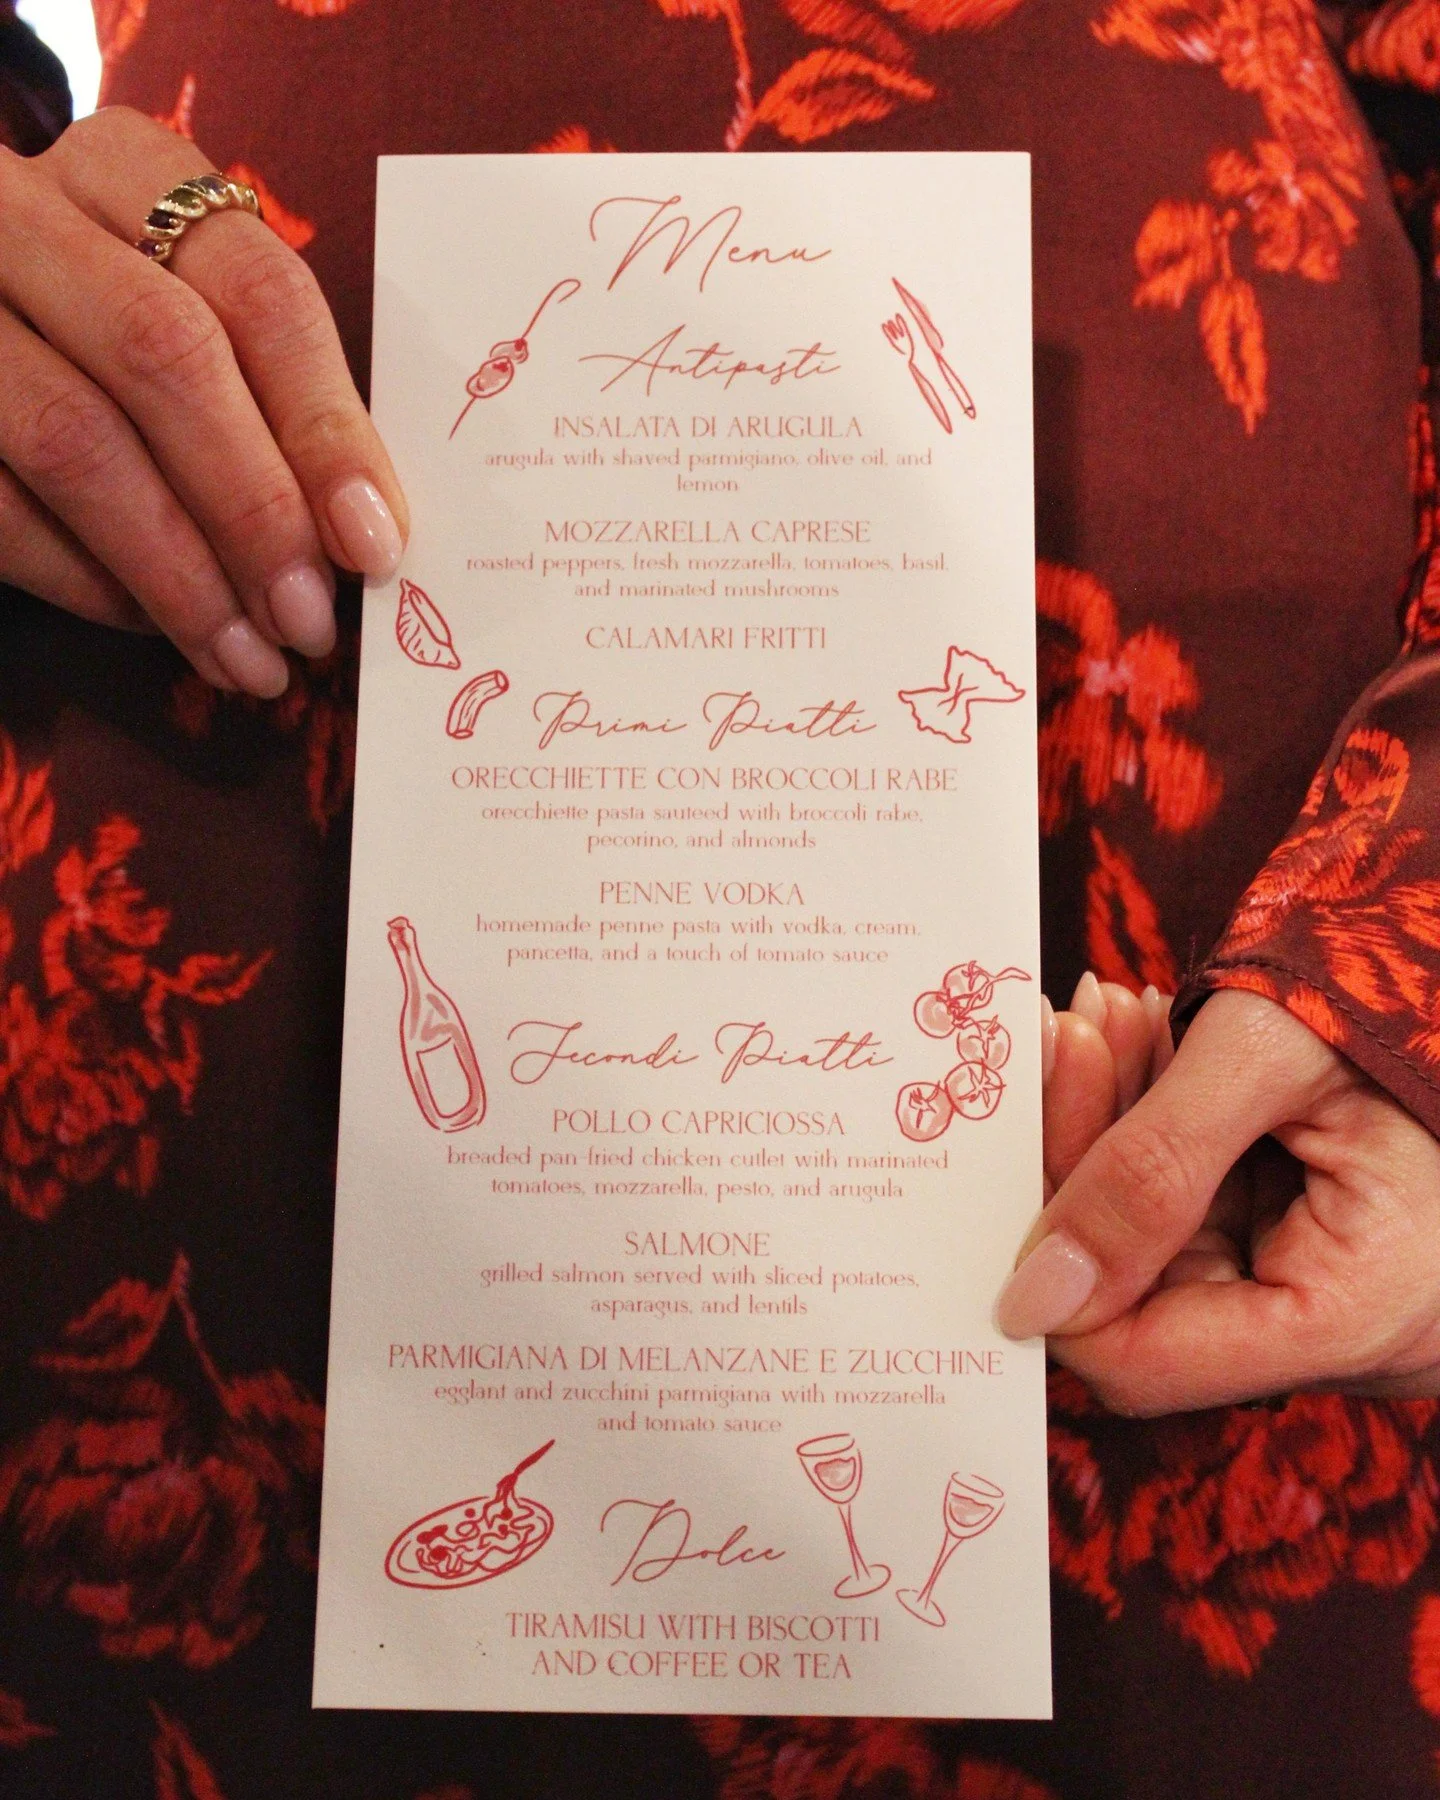 Menu
Antipasti
INSALATA DI ARUGULA
arugula with shaved parmigiano, olive oil, and
lemon
MOZZARELLA CAPRESE
roasted peppers, fresh mozzarella, tomatoes, basil,
and marinated mushrooms
CALAMARI FRITTI
Primi Piatti
ORECCHIETTE CON BROCCOLI RABE
orecchiette pasta sauteed with broccoli rabe,
pecorino, and almonds
PENNE VODKA
homemade penne pasta with vodka, cream,
pancetta, and a touch of tomato sauce
Secondi Piatti
POLLO CAPRICIOSSA
breaded pan-fried chicken cutlet with marinated
tomatoes, mozzarella, pesto, and arugula
SALMONE
grilled salmon served with sliced potatoes,
asparagus, and lentils
PARMIGIANA DI MELANZANE E ZUCCHINE
egglant and zucchini parmigiana with mozzarella
and tomato sauce
Dolce
TIRAMISU WITH BISCOTTI
AND COFFEE OR TEA